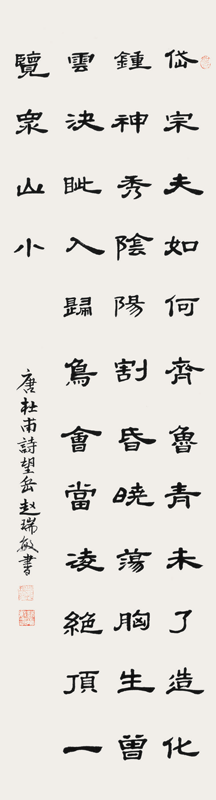 岱宗夫如何齊魯青未了造化
鍾神秀陰陽割昏曉蕩胸生曾
雲決眦入歸鳥會當凌絕頂一
覽眾山小
唐杜甫詩望岳趙瑞敏書